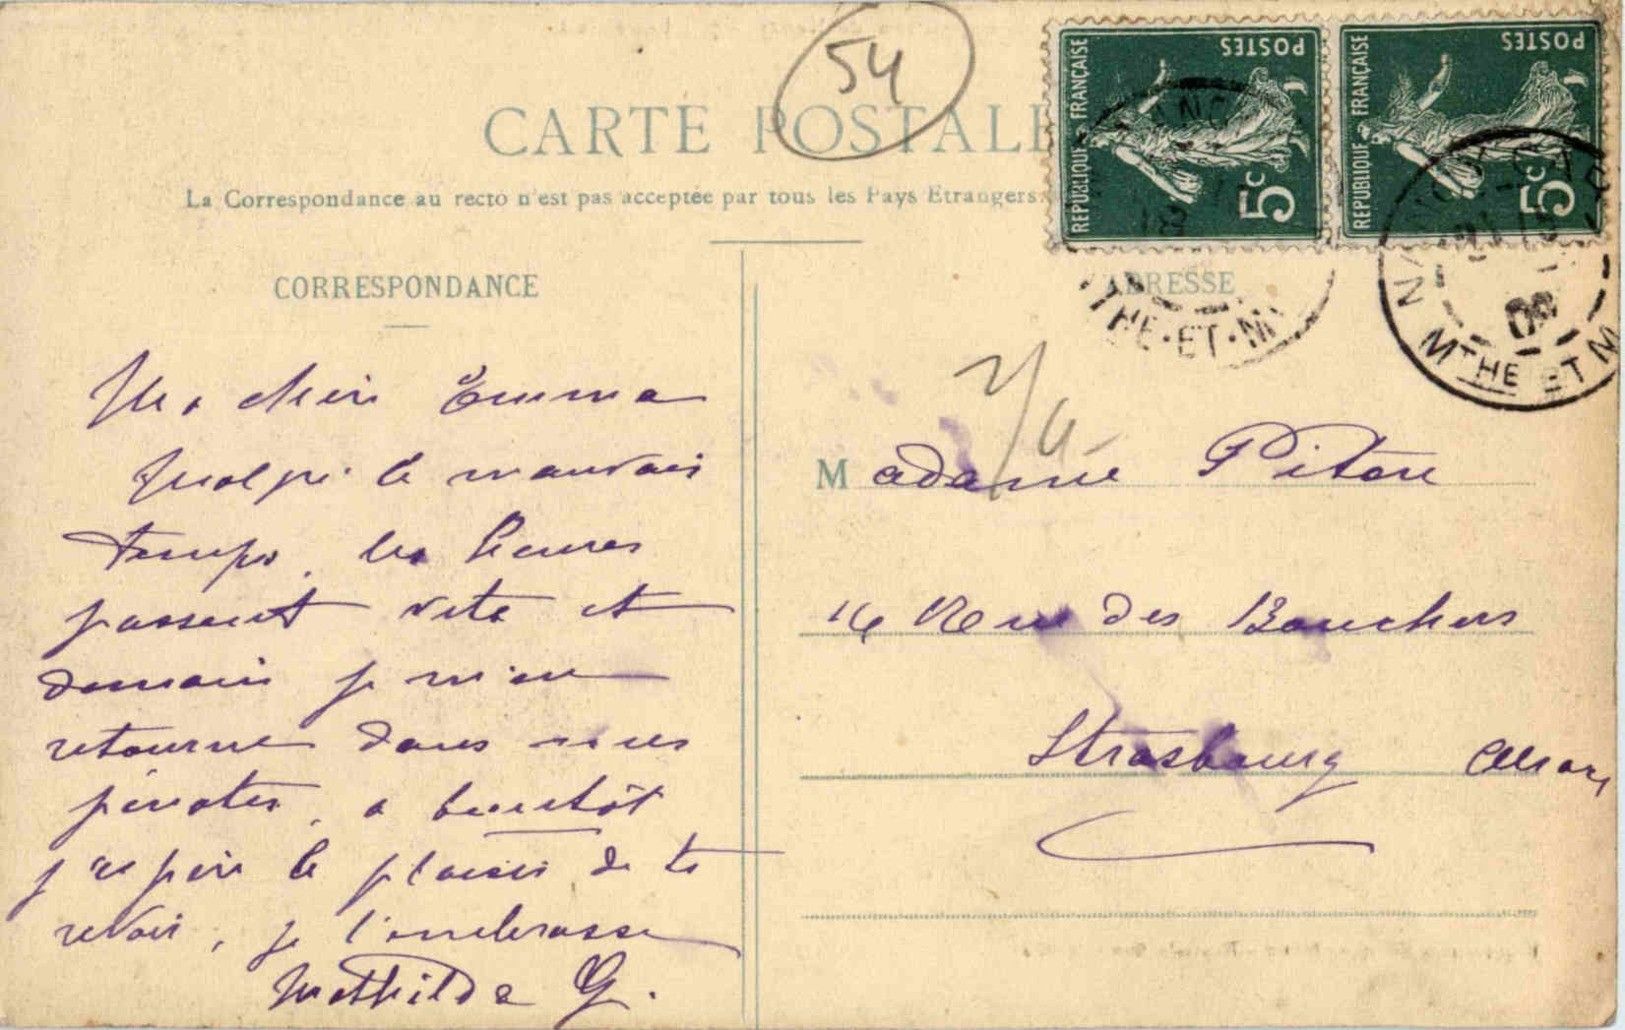 54
CARTE POSTALE
La Correspondance au recto n'est pas acceptée par tous les Pays Etrangers
REPUBLIQUE FRANÇAISE
POSTES
5c
REPUBLIQUE FRANÇAISE
POSTES
5c
THE-ET-M
NANCY
09
MTHE ET M
CORRESPONDANCE
ADRESSE
Ma chère Emma
Malgré le mauvais
temps, les heures
passent vite et
demain je m'en
retourne dans mes
pénates, a bientôt
j'espère le plaisir de te
revoir, je t'embrasse
Mathilde G.
Madame Piton
14 Rue des Bouchers
Strasbourg Alsace